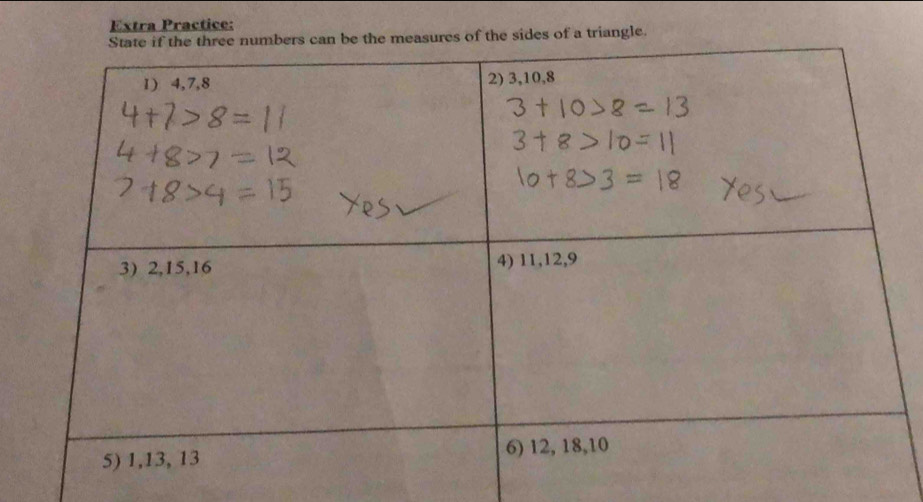 Extra Practice:
State if the three numbers can be the measures of the sides of a triangle.
1) 4,7,8
4+7>8=11
4+8>7=12
7+8>4=15
Yes✓
2) 3,10,8
3+10>8=13
3+8>10=11
10+8>3=18
Yes✓
3) 2,15,16
4) 11,12,9
5) 1,13, 13
6) 12, 18,10